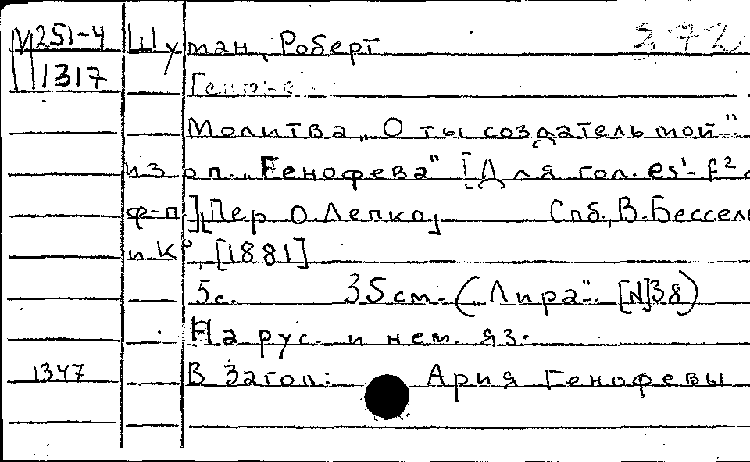 М251-4 Шуман, Роберт 372
1317
Молитва „О ты создатель мой"
из оп. „Генофева" [Для гол. es¹-f² с
ф-п.] [Пер. О. Лепко] Спб., В. Бессель
и К°, [1881]
5с. 35см. („Лира". [N]38)
На рус. и нем. яз.
1347 В загол: Ария Генофевы